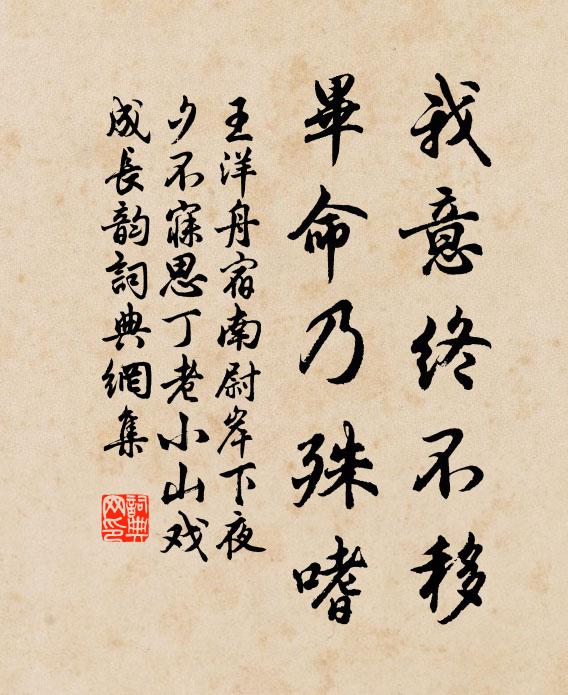 我意終不移
畢命乃殊嗜
王洋舟宿南尉岸下夜
夕不寐思丁老小山戏
成長韵詞典網集
詞典网印